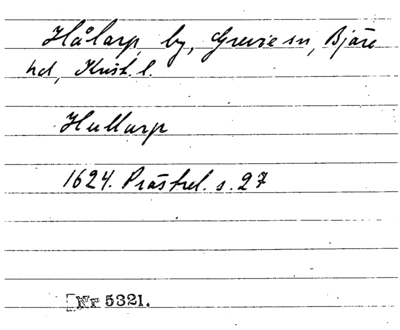 Hålarp, by, Grevie sn, Bjäre
hd, Krist. l.
Hullarp
1624. Prästrel. s. 27
Nr 5321.